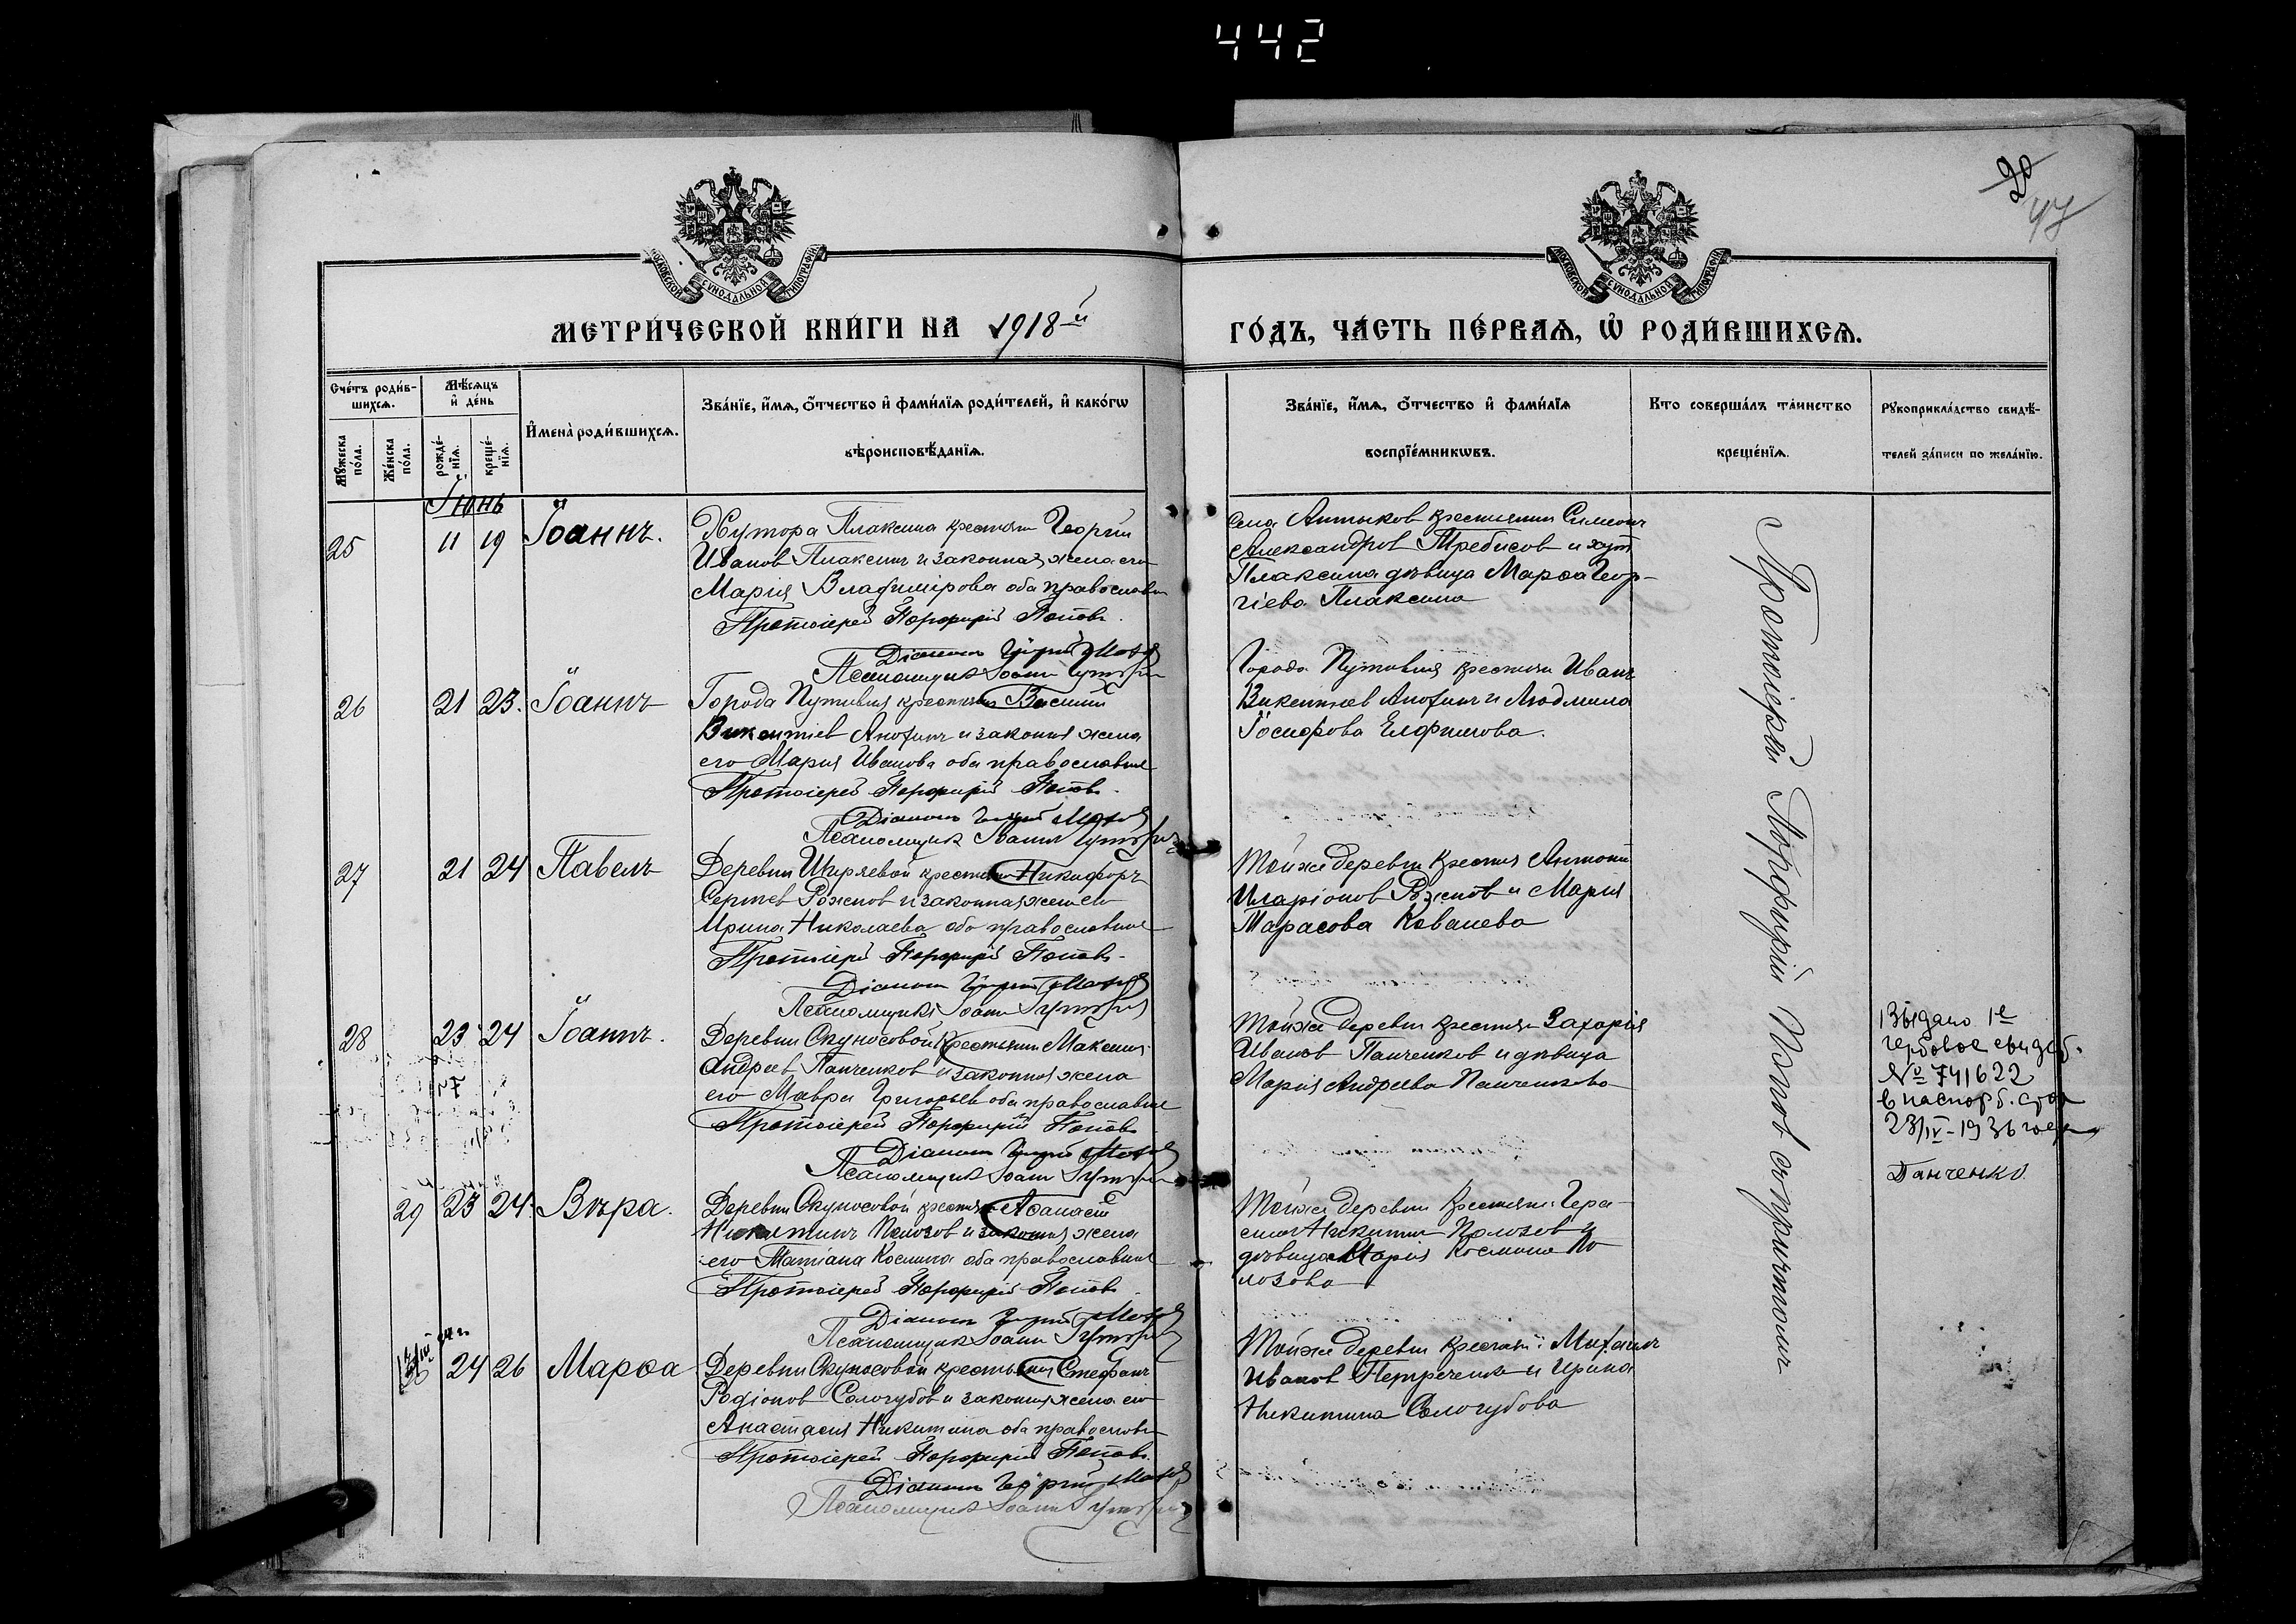 442
20
47
МОСКОВСКОЙ СѴНОДАЛЬНОЙ ТИПОГРАФІИ
МОСКОВСКОЙ СѴНОДАЛЬНОЙ ТИПОГРАФІИ
МЕТРИ́ЧЕСКОЙ КНИ́ГИ НА 1918-й
ГО́ДЪ, ЧА́СТЬ ПЕ́РВАЯ, Ѡ҆ РОДИ́ВШИХСѦ.
Сче́тъ роди́в-
шихсѧ.
Мꙋ́жеска по́ла.
Же́нска по́ла.
Мѣ́сѧцъ
и҆ де́нь
рожде́-
нїѧ.
креще́-
нїѧ.
И҆мена̀ роди́вшихсѧ.
Зва́нїе, и҆́мѧ, ѻ҆́тчество и҆ фами́лїѧ роди́телей, и҆ како́гѡ
вѣроисповѣ́данїѧ.
Зва́нїе, и҆́мѧ, ѻ҆́тчество и҆ фами́лїѧ
воспрїе́мникѡвъ.
Кто соверша́лъ та́инство
креще́нїѧ.
Рꙋкоприкла́дство свидѣ́-
телей за́писи по жела́нїю.
Іюнь
25 11 19 Іоаннъ.
Хутора Плаксина крестьян Георгій
Иванов Плаксинъ и законная жена его
Марія Владимірова оба православн
Протоіерей Порфирій Поповъ.
Діаконъ
Псаломщикъ Іоаннъ
Села крестьянин Симеонъ
Александров и хут
Плаксина дѣвица Марѳа Геор-
гіева Плаксина
26 21 23. Іоаннъ
Города Путивля крестьян Василій
Викентіев и законная жена
его Марія Иванова оба православные
Протоіерей Порфирій Поповъ.
Діаконъ
Псаломщикъ Іоаннъ
Города Путивля крестьян Иванъ
Викентіев и Людмила
Іосифова Елфимова.
27 21 24 Павелъ
Деревни Ширяевой крестьян Никифоръ
Сергіев Роженов и законная жена его
Ирина Николаева оба православные
Протоіерей Порфирій Поповъ.
Діаконъ
Псаломщикъ Іоаннъ
Той же деревни крестьян Антоній
Иларіонов и Марія
Тарасова Ковалева
28 23 24 Іоаннъ.
Деревни Скуносовой Крестьянин Максимъ
Андреев Панченков и законная жена
его Мавра Григорьев оба православные
Протоіерей Порфирій Поповъ
Діаконъ
Псаломщикъ Іоаннъ
Той же деревни крестьян Захарія
Иванов Панченков и дѣвица
Марія Андреева Панченкова
Выдано 1е
гербовое свидет.
№ 741622
в паспорт. стол
23/IV-1936 года
Панченко
29 23 24. Вѣра.
Деревни Скуносовой крестьян Аѳанасій
Никитинъ Полозов и законная жена
его Татіана Космина оба православные
Протоіерей Порфирій Поповъ.
Діаконъ
Псаломщикъ Іоаннъ
Той же деревни Крестьян. Гера-
симъ Никитин Полозов и
дѣвица Марія Космина По
лозова
30 24 26 Марѳа
Деревни Скуносовой крестьянин Стефанъ
Родіонов Сологубов и законная жена его
Анастасія Никитина оба православн
Протоіерей Порфирій Поповъ.
Діаконъ Георгій
Псаломщикъ Іоаннъ
Той же деревни крестьян. Михаилъ
Иванов Петреченко и Ирина
Никитина Сологубова
Протоіерей Порфирій Попов с причтомъ